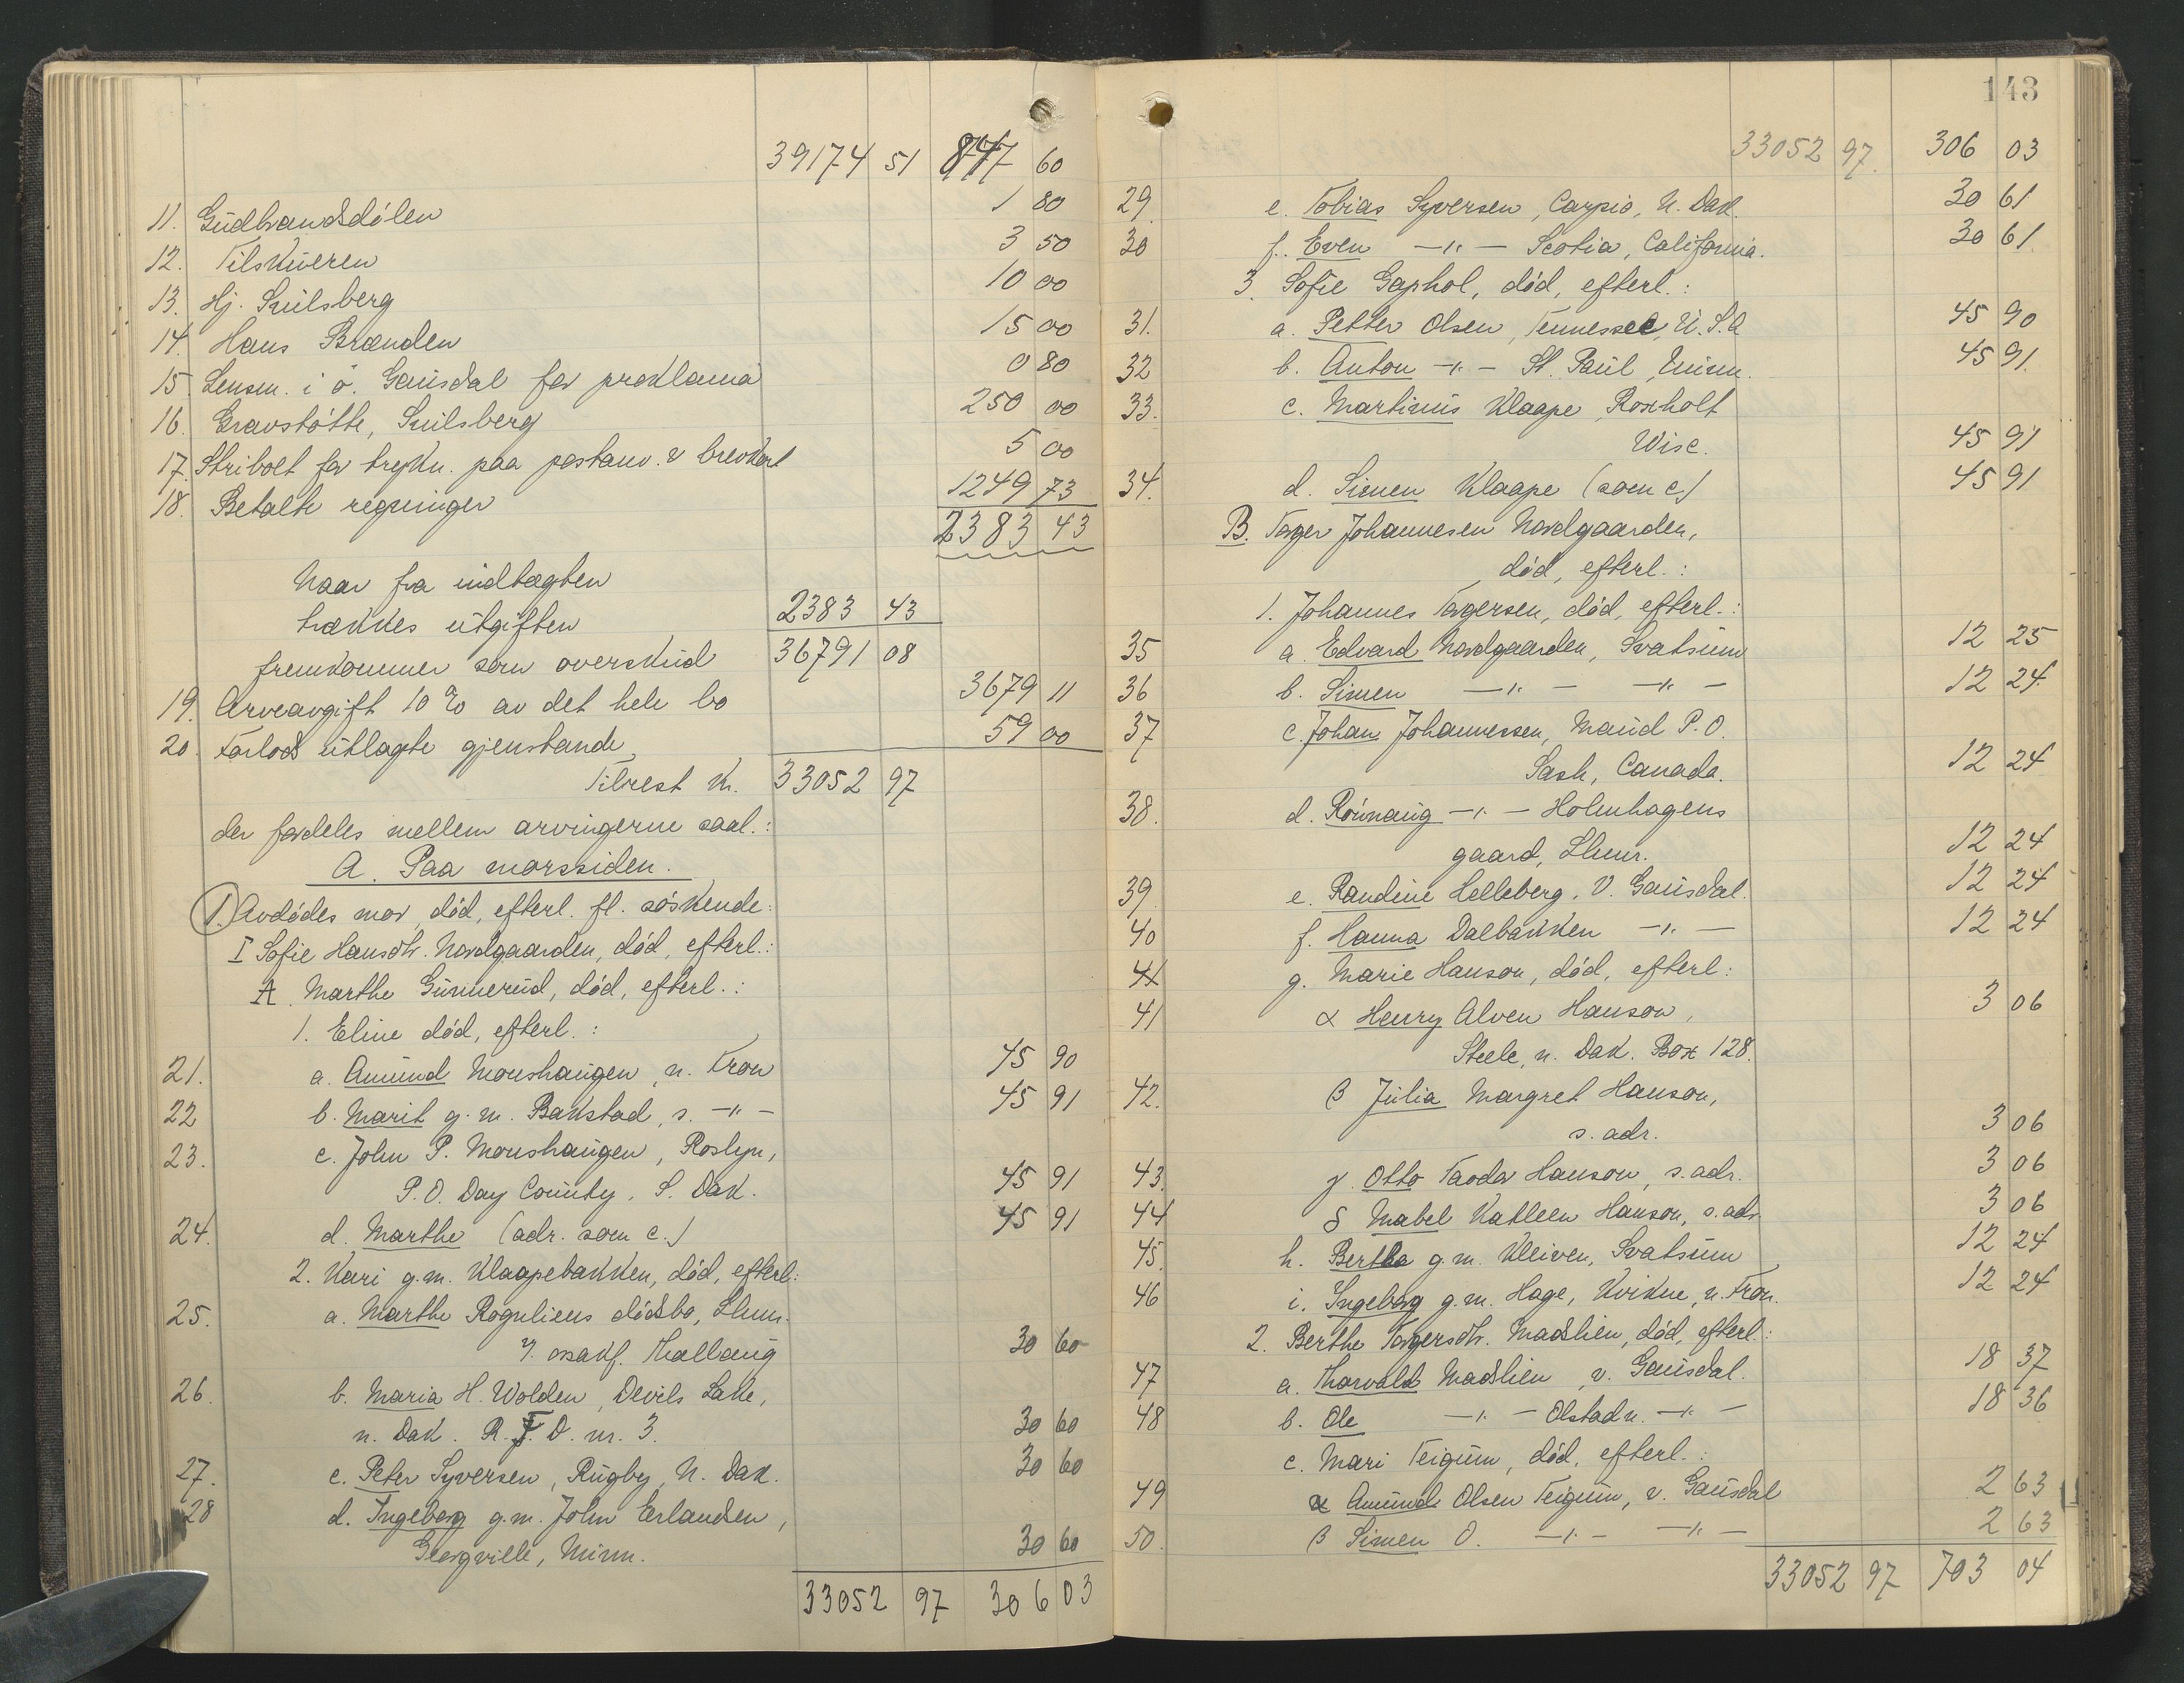 39174 51 847 60
11. Gudbrandsdölen 1 80
12. Tilskueren 3 50
13. Hj. Suilsberg 10 00
14. Hans Brænden 15 00
15. Lensm. i ö. Gausdal for proklama 0 80
16. Gravstötte, Suilsberg 250 00
17. Stribolt for trykn. paa postanv. & brevkort 5 00
18. Betalte regninger 1249 73
2383 43
Naar fra indtægten
trækkes utgiften 2383 43
fremkommer som overskud 36791 08
19. Arveavgift 10 % av det hele bo 3679 11
20. Forlods utlagte gjenstande 59 00
Tilrest kr. 33052 97
der fordeles mellem arvingerne saal.:
A. Paa morssiden.
1. Avdödes mor, död, efterl. fl. söskende:
I Sofie Hansdtr. Nordgaarden, död, efterl.:
A. Marthe Gunnerud, död, efterl.:
1. Eline död, efterl.:
21. a. Amund Moushaugen, n. Fron 45 90
22 b. Marit g.m. Bakstad, s. -"- 45 91
23. c. John P. Moushaugen, Roslyn,
P.O. Day County, S. Dak. 45 91
24. d. Marthe (adr. som c.) 45 91
2. Kari g.m. Klaapebakken, död, efterl:
25. a. Marthe Roguliens dödsbo, Lhmr.
v. osakf. Thallaug 30 60
26. b. Maria H. Wolden, Devils Lake,
n. Dak. R. F. D. nr. 3. 30 60
27. c. Peter Syversen, Rugby, N. Dak. 30 60
28 d. Ingeborg g.m. John Erlandsen,
Georgville, Minn. 30 60
33052 97 306 03
143
33052 97. 306 03
29. e. Tobias Syversen, Carpio, N. Dak. 30 61
30 f. Even -"- Scotia, California. 30 61
3. Sofie Gaphol, död, efterl.:
31. a. Petter Olsen, Tennessee, U.S.A 45 90
32 b. Anton -"- St. Paul, Minn. 45 91.
33. c. Martinus Klaape, Roxholt
Wisc. 45 91
34. d. Simen Klaape (som c.) 45 91
B. Torger Johannesen Nordgaarden,
död, efterl.:
1. Johannes Torgersen, död, efterl.:
35 a. Edvard Nordgaarden, Svatsum 12 25
36 b. Simen -"- -"- 12 24
37 c. Johan Johannessen, Maud P.O.
Sask, Canada. 12 24
38. d. Rönnaug -"- Holmhagens
gaard, Lhmr. 12 24
39. e. Randine Helleberg, V. Gausdal. 12 24
40 f. Hanna Dalbakken -"- 12 24
41 g. Marie Hanson, död, efterl:
41 α Henry Alven Hanson, 3 06
Steele, n. Dak. Box 128.
42. β Julia Margret Hanson,
s. adr. 3 06
43. γ. Otto Taodor Hanson, s. adr. 3 06
44 δ Mabel Katleen Hanson, s. adr 3 06
45. h. Bertha g.m. Kleiven, Svatsum 12 24
46 i. Ingeborg g.m. Hage, Kvikne, n. Fron. 12 24
2. Berthe Torgersdtr. Madslien, död, efterl.:
47 a. Thorvald Madslien, v. Gausdal. 18 37
48 b. Ole -"- Olstad n. -"- 18 36
c. Mari Teigum, död, efterl.:
49 α Amund Olsen Teigum, v. Gausdal 2 63
50. β Simen O. -"- -"- 2 63
33052 97 703 04